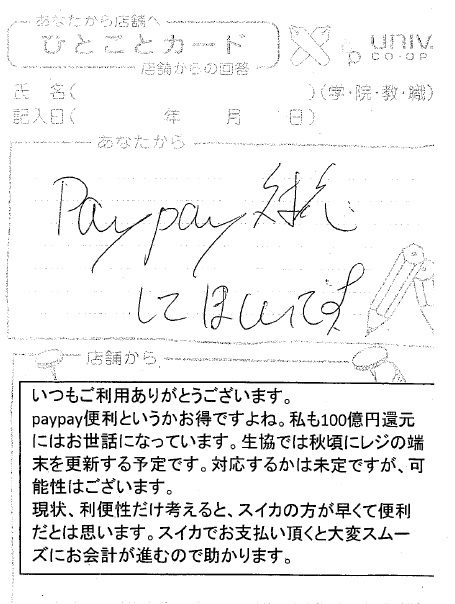 あなたから店舗へ
ひとことカード
店舗からの回答
univ.
CO-OP
氏 名( )(学・院・教・職)
記入日( 年 月 日)
あなたから
Paypay 対応
してほしいです
店舗から
いつもご利用ありがとうございます。
paypay便利というかお得ですよね。私も100億円還元
にはお世話になっています。生協では秋頃にレジの端
末を更新する予定です。対応するかは未定ですが、可
能性はございます。
現状、利便性だけ考えると、スイカの方が早くて便利
だとは思います。スイカでお支払い頂くと大変スムー
ズにお会計が進むので助かります。